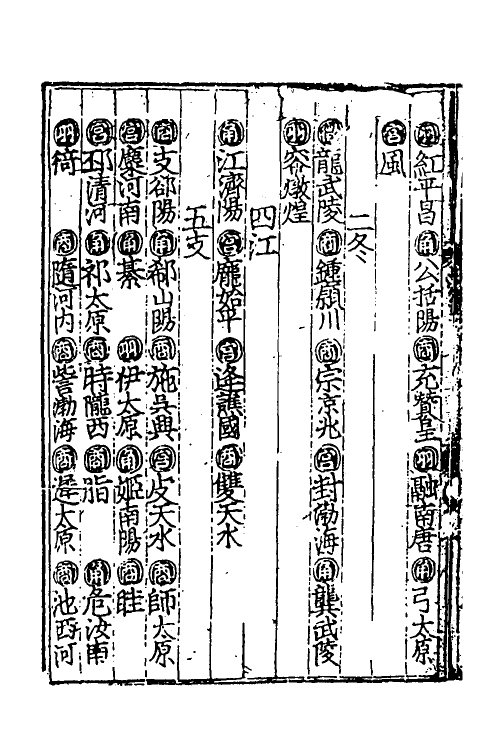 羽紅平昌角公括陽商充贊皇羽融南唐角弓太原
宮風
二冬
龍武陵商鍾潁川商宗京兆宮封渤海角龔武陵
羽容燉煌
四江
角江濟陽宮龐始平宮逄譙國商雙天水
五支
商支郃陽角郗山陽商施吳興宮皮天水商師太原
宮麋河南角綦羽伊太原角姬南陽商眭
宮邳清河角祁太原商時隴西商脂角危汝南
羽猗商隨河内商訾渤海商遲太原商池西河